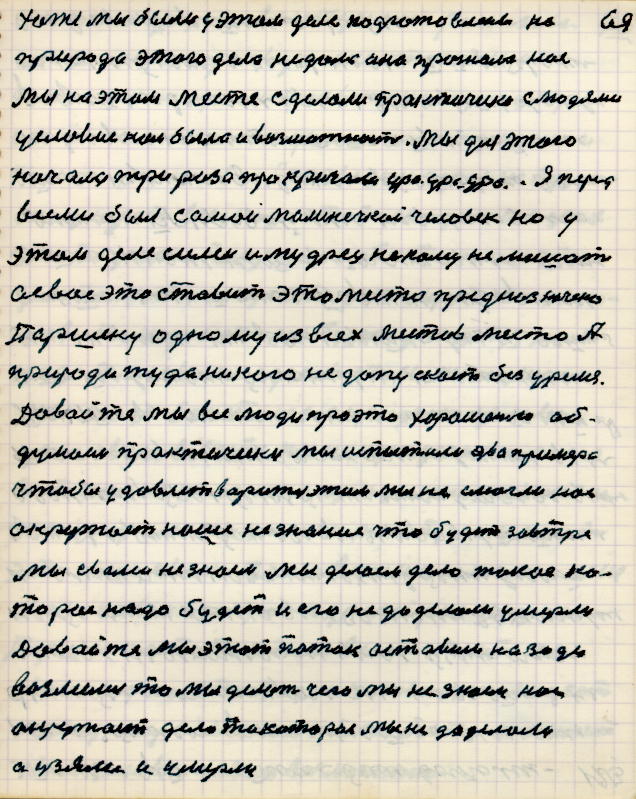 69
Хотя мы были у этом деле подготовлены но
природа этого дела недала она прогнала нас
Мы на этом месте сделали практически с людями
условие нам была и возможность. Мы для этого
начала три раза прокричали ура. ура. ура. Я перед
всеми был самой малинечкой человек но у
этом деле силен и мудрец никому не мешать
а свое это ставит Это место предназначено
Паршеку одному из всех местов место А
природа туда никого не допускает без уремя.
Давайте мы все люди про это хорошенько об-
думаем практически мы испытали два примера
чтобы удовлетварится этим мы не смогли нас
окружает наше незнание что будет завтра
мы с вами незнаем Мы делаем дело такое ко-
торое надо будет и его не доделали умерли
Давайте мы этот поток оставим назади
возмемся то мы делать чего мы не знаем нас
окружает дело то которое мы не доделали
а узяли и умерли